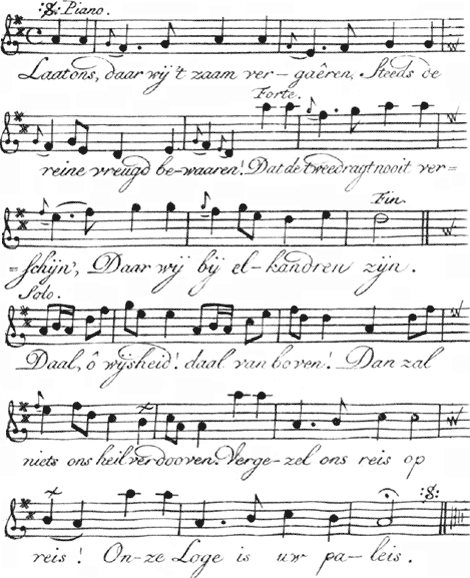 :S: Piano.
Laat ons, daar wij 't zaam ver- gaêren, Steeds de
Forte.
reine vreugd be-waaren! Dat de tweedragt nooit ver=
Fin.
=schijn', Daar wij bij el-kandren zijn.
Solo.
Daal, ô wijsheid! daal van boven! Dan zal
niets ons heil verdooven: Verge-zel ons reis op
:S:
reis! On-ze Loge is uw pa-leis.